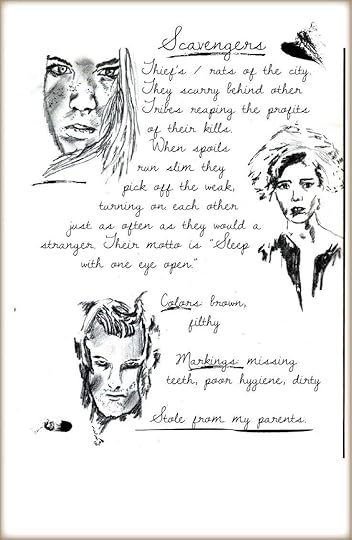 Scavengers
Thief's / rats of the city.
They scurry behind other
Tribes reaping the profits
of their kills.
When spoils
run slim they
pick off the weak,
turning on each other
just as often as they would a
stranger. Their motto is "Sleep
with one eye open."
Colors: brown,
filthy
Markings: missing
teeth, poor hygiene, dirty
Stole from my parents.